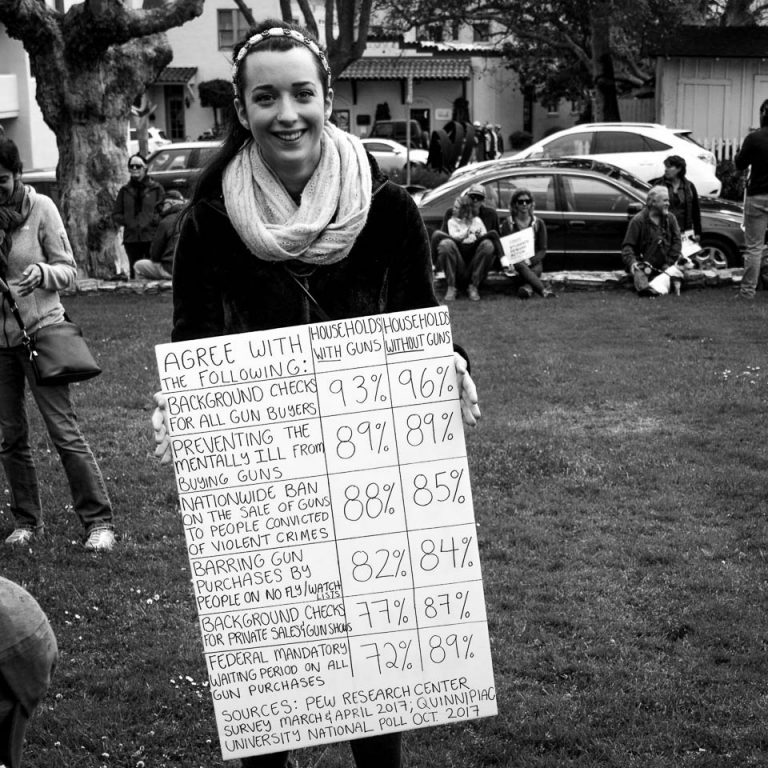 AGREE WITH
THE FOLLOWING:
HOUSEHOLDS
WITH GUNS
HOUSEHOLDS
WITHOUT GUNS
BACKGROUND CHECKS
FOR ALL GUN BUYERS
93% 96%
PREVENTING THE
MENTALLY ILL FROM
BUYING GUNS
89% 89%
NATIONWIDE BAN
ON THE SALE OF GUNS
TO PEOPLE CONVICTED
OF VIOLENT CRIMES
88% 85%
BARRING GUN
PURCHASES BY
PEOPLE ON NO FLY/WATCH
LISTS
82% 84%
BACKGROUND CHECKS
FOR PRIVATE SALES & GUN SHOWS
77% 87%
FEDERAL MANDATORY
WAITING PERIOD ON ALL
GUN PURCHASES
72% 89%
SOURCES: PEW RESEARCH CENTER
SURVEY MARCH & APRIL 2017; QUINNIPIAC
UNIVERSITY NATIONAL POLL OCT. 2017